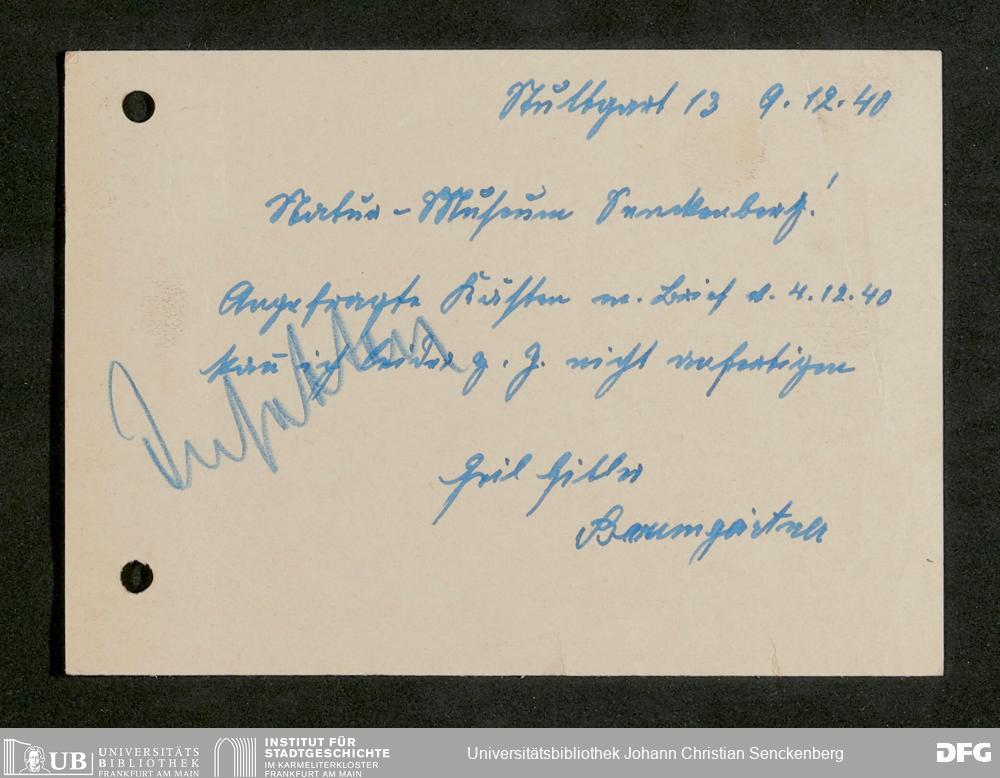 Stuttgart 13 9.12.40
Natur-Museum Senckenberg!
Angefragte Kästen m. Brief v. 4.12.40
kan̄ ich leider z. Z. nicht anfertigen
Heil Hitler
Baumgärtner
UB UNIVERSITÄTS
BIBLIOTHEK
FRANKFURT AM MAIN
INSTITUT FÜR
STADTGESCHICHTE
IM KARMELITERKLOSTER
FRANKFURT AM MAIN
Universitätsbibliothek Johann Christian Senckenberg
DFG